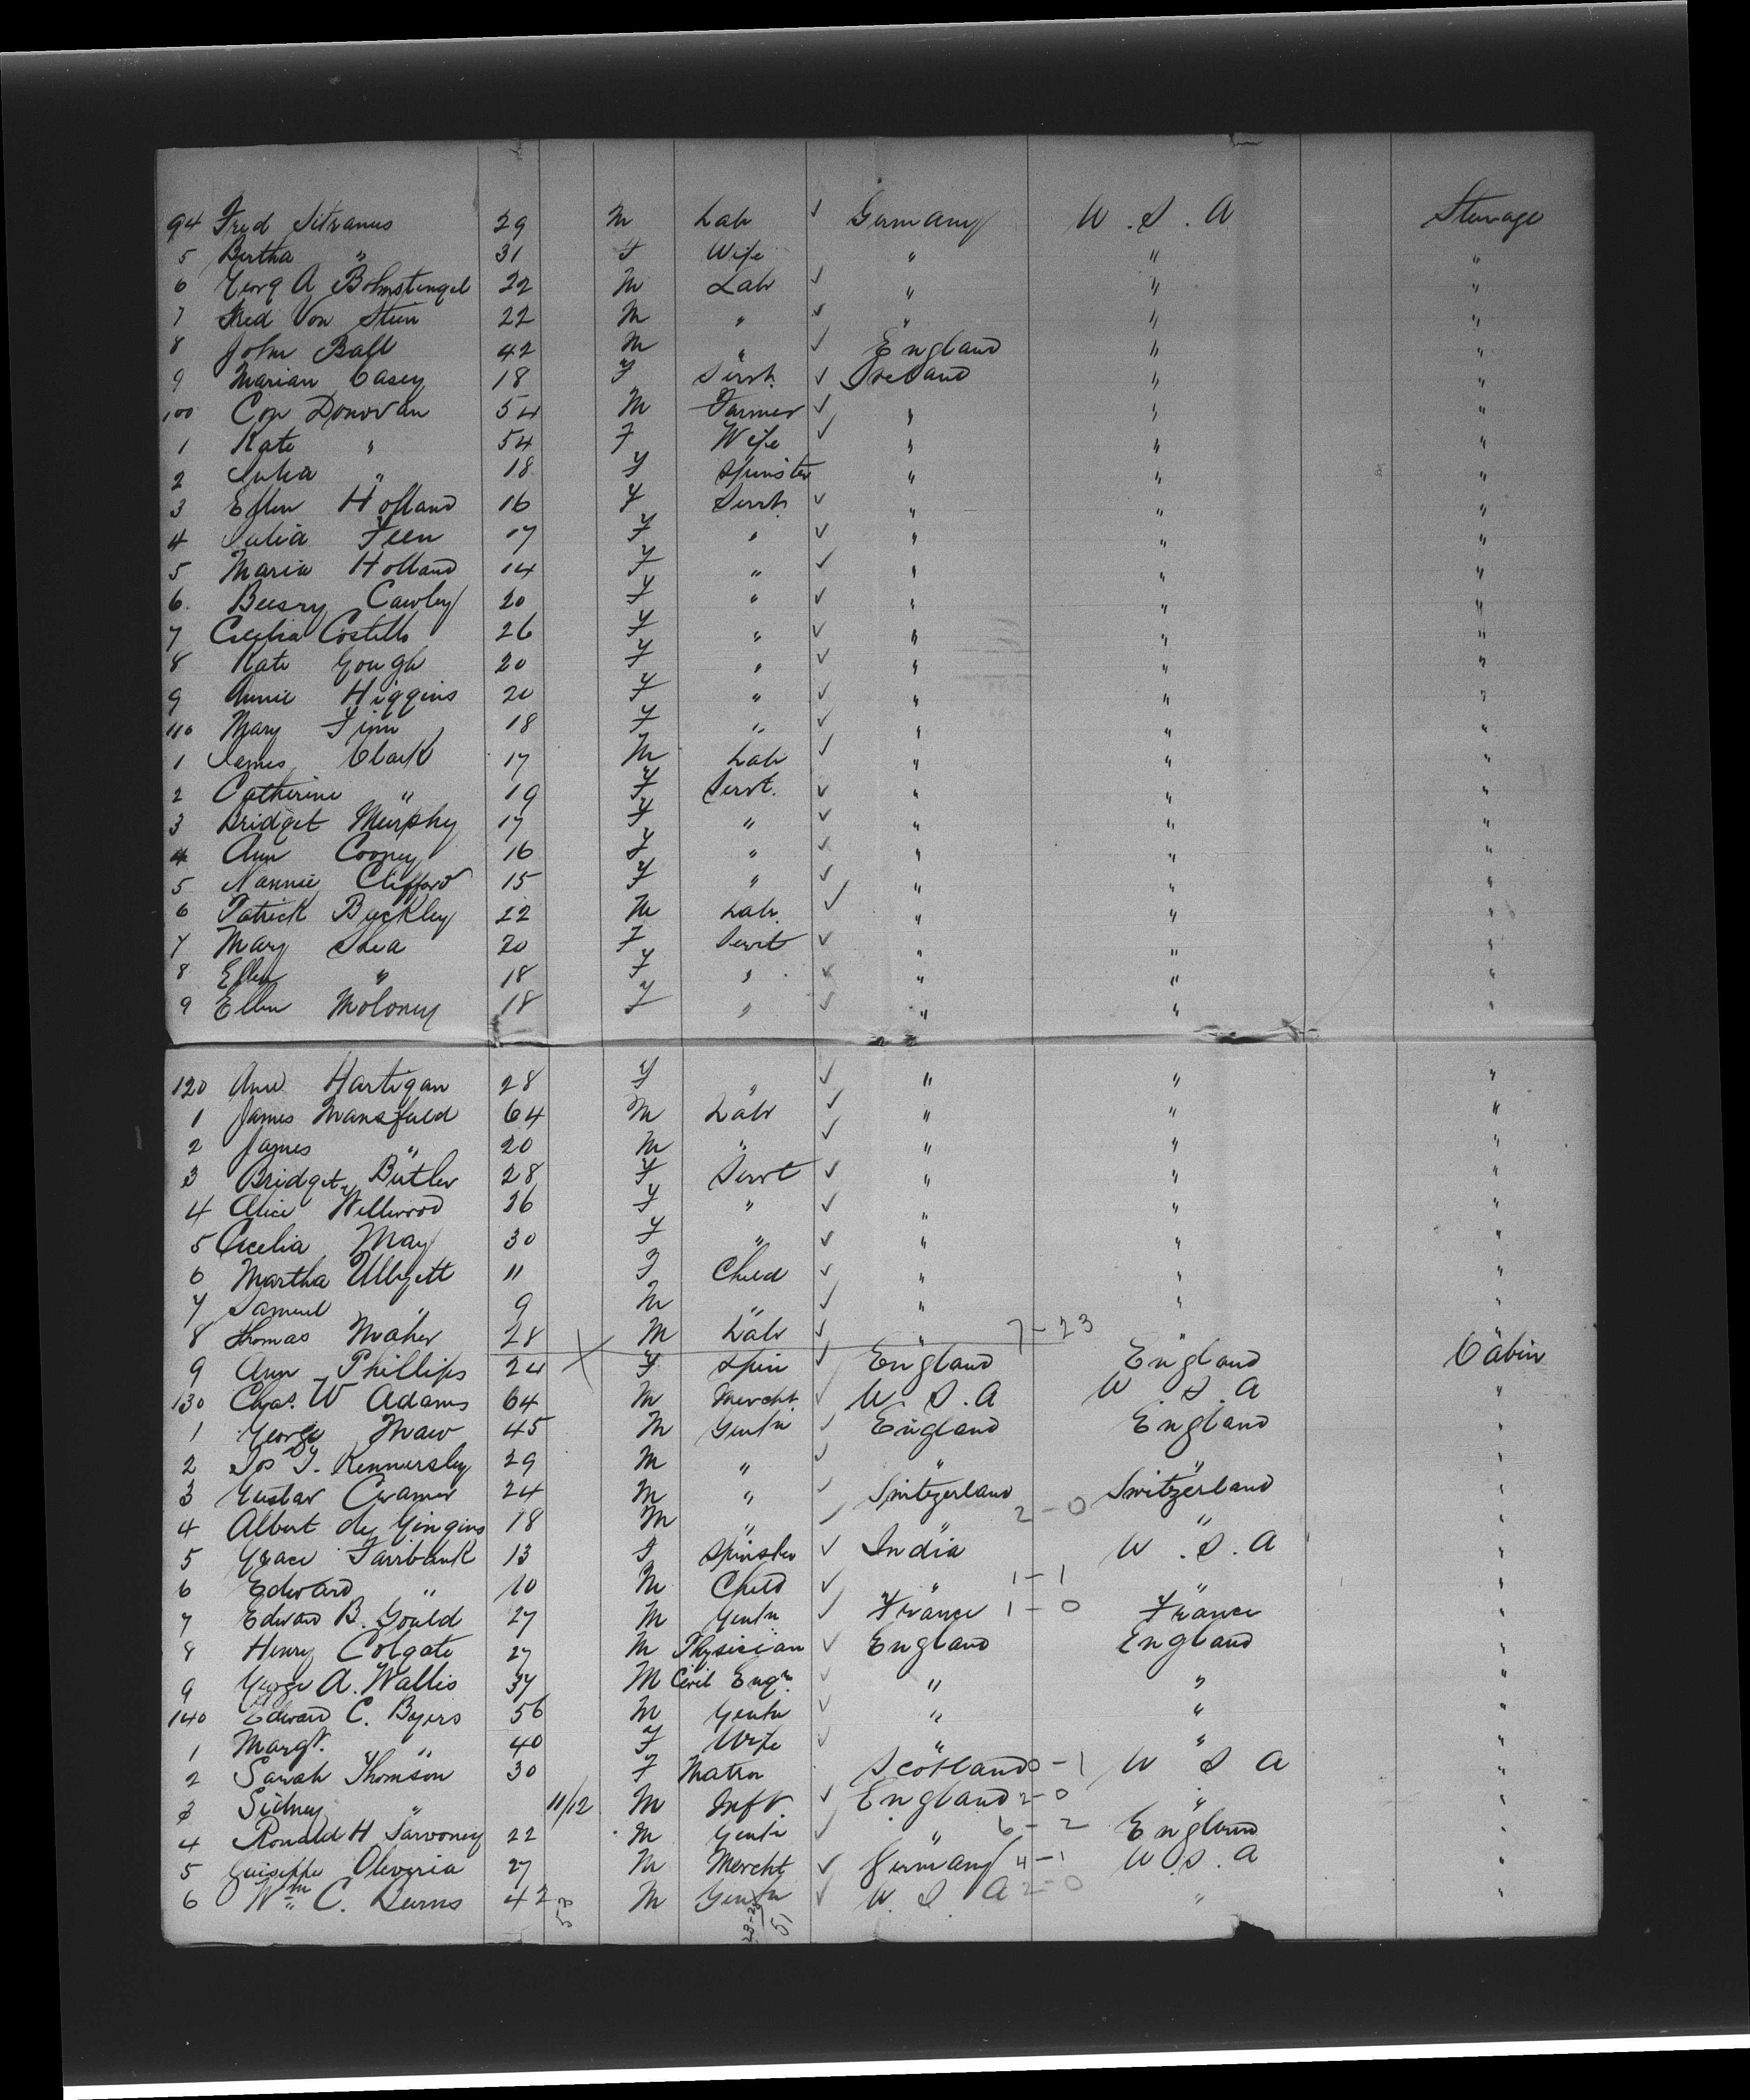 94 Fred Sitranus 29 M Lab ✓ Germany U.S.A Steerage
5 Bertha " 31 F Wife " " "
6 Georg A Bohnstengel 22 M Lab ✓ " " "
7 Fred Von Stein 22 M " ✓ " " "
8 John Ball 42 M " ✓ England " "
9 Marian Casey 18 F Servt. ✓ Ireland " "
100 Con Donovan 54 M Farmer ✓ " " "
1 Kate " 54 F Wife ✓ " " "
2 Julia " 18 F Spinster " " "
3 Ellen Holland 16 F Servt. ✓ " " "
4 Julia Feen 17 F " ✓ " " "
5 Maria Holland 14 F " ✓ " " "
6. Cawley 20 F " ✓ " " "
7 Cecilia Costello 26 F " ✓ " " "
8 Kate Gough 20 F " ✓ " " "
9 Annie Higgins 20 F " ✓ " " "
110 Mary Finn 18 F " ✓ " " "
1 James Clark 17 M Lab ✓ " " "
2 Catherine " 19 F Servt. ✓ " " "
3 Bridget Murphy 17 F " ✓ " " "
4 Ann Cooney 16 F " ✓ " " "
5 Nannie Clifford 15 F " ✓ " " "
6 Patrick Buckley 22 M Lab. ✓ " " "
7 Mary Shea 20 F Servt ✓ " " "
8 Ellen " 18 F " ✓ " " "
9 Ellen Moloney 18 F " ✓ " " "
120 Ann Hartigan 28 F " ✓ " " "
1 James Mansfield 64 M Labr ✓ " " "
2 James " 20 M " ✓ " " "
3 Bridget Butler 28 F Servt ✓ " " "
4 Alice Wellwood 26 F " ✓ " " "
5 Cecelia May 30 F " ✓ " " "
6 Martha 11 F Child ✓ " " "
7 Samuel " 9 M " ✓ " " "
8 Thomas Maher 28 M Labr ✓ " 7-23 "
9 Ann Phillips 24 F Spin ✓ England England Cabin
130 Chas. W Adams 64 M Mercht. ✓ U.S.A U.S.A "
1 George Maw 45 M Gentn ✓ England England
2 Jos T. Kennersley 29 M " ✓ " " "
3 Gustav Cramer 24 M " ✓ Switzerland Switzerland "
4 Albert de Gingins 18 M " ✓ " 2-0 " "
5 Grace Fairbank 13 F Spinster ✓ India U.S.A "
6 Edward " 10 M Child ✓ " 1-1 " "
7 Edward B. Gould 27 M Gentn ✓ France 1-0 France "
8 Henry Colgate 27 M Physician ✓ England England "
9 George A. Wallis 37 M Civil Engr. ✓ " " "
140 Edward C. Byers 56 M Gentn ✓ " " "
1 Margt. " 40 F Wife ✓ " " "
2 Sarah Thomson 30 F Matron Scotland 0-1 U S A "
3 Sidney " 11/12 M Inft. ✓ England 2-0 " "
4 Ronald H 22 M Gentn ✓ " 6-2 England "
5 Guiseppe Oliveria 27 M Mercht ✓ Germany 4-1 U.S.A "
6 Wm C. Burns 42 M Gentn ✓ U.S.A 2-0 " "
53 23-28 51